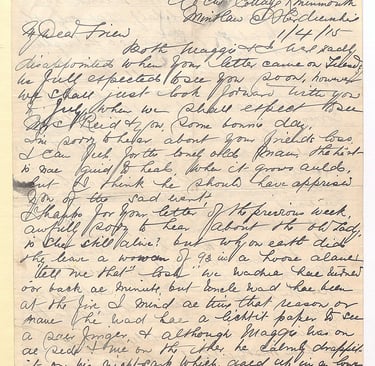 Cottage Kininmonth
Mintlaw St
11/4/15
My Dear Friend
Both Maggie & I was sadly
disappointed when your letter came on Tuesday
we full expected to see you soon, however
we shall just look forward with you
to July when we shall expect to see
Reid & you, some bonnie day.
I'm sorry to hear about your friends loss,
I can feel for the lonely
is nae guid to heal, when it grows auld,
but I think he should have apprised
you of the sad went.
Thanks for your letter of the previous week,
awfully sorry to hear about the old Lady,
is she still alive? but why on earth did
she leave a woman of 93 in a hoose alane
tell me that "loon" we wadna hae turned
oor back ae minute, but Uncle wad hae been
at the fire I mind ae this that reason or
nane he wad hae a lichtit paper to see
a sair finger & although Maggie was on
ae side & me on the ither he calmly drappit
it on his nightsark which gaed up in a lowe